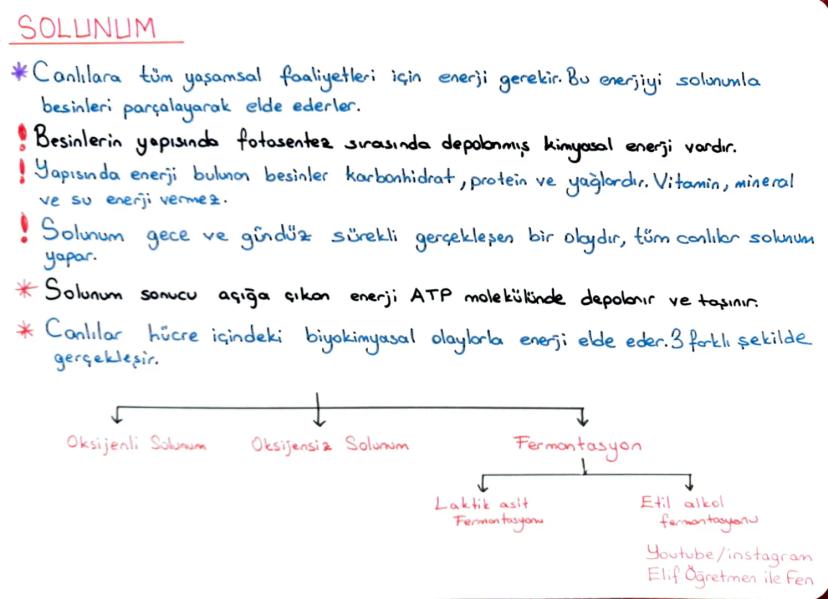 SOLUNUM
* Canlılara tüm yaşamsal faaliyetleri için enerji gerekir. Bu enerjiyi solunumla
besinleri parçalayarak elde ederler.
! Besinlerin yapısında fotosentez sırasında depolanmış kimyasal enerji vardır.
! Yapısında enerji bulunan besinler karbonhidrat, protein ve yağlardır. Vitamin, mineral
ve su enerji vermez.
! Solunum gece ve gündüz sürekli gerçekleşen bir olaydır, tüm canlılar solunum
yapar.
* Solunum sonucu açığa çıkan enerji ATP molekülünde depolanır ve taşınır.
* Canlılar hücre içindeki biyokimyasal olaylarla enerji elde eder. 3 farklı şekilde
gerçekleşir.
Oksijenli Solunum Oksijensiz Solunum Fermantasyon
Laktik asit Etil alkol
Fermantasyonu fermantasyonu
Youtube/instagram
Elif Öğretmen ile Fen